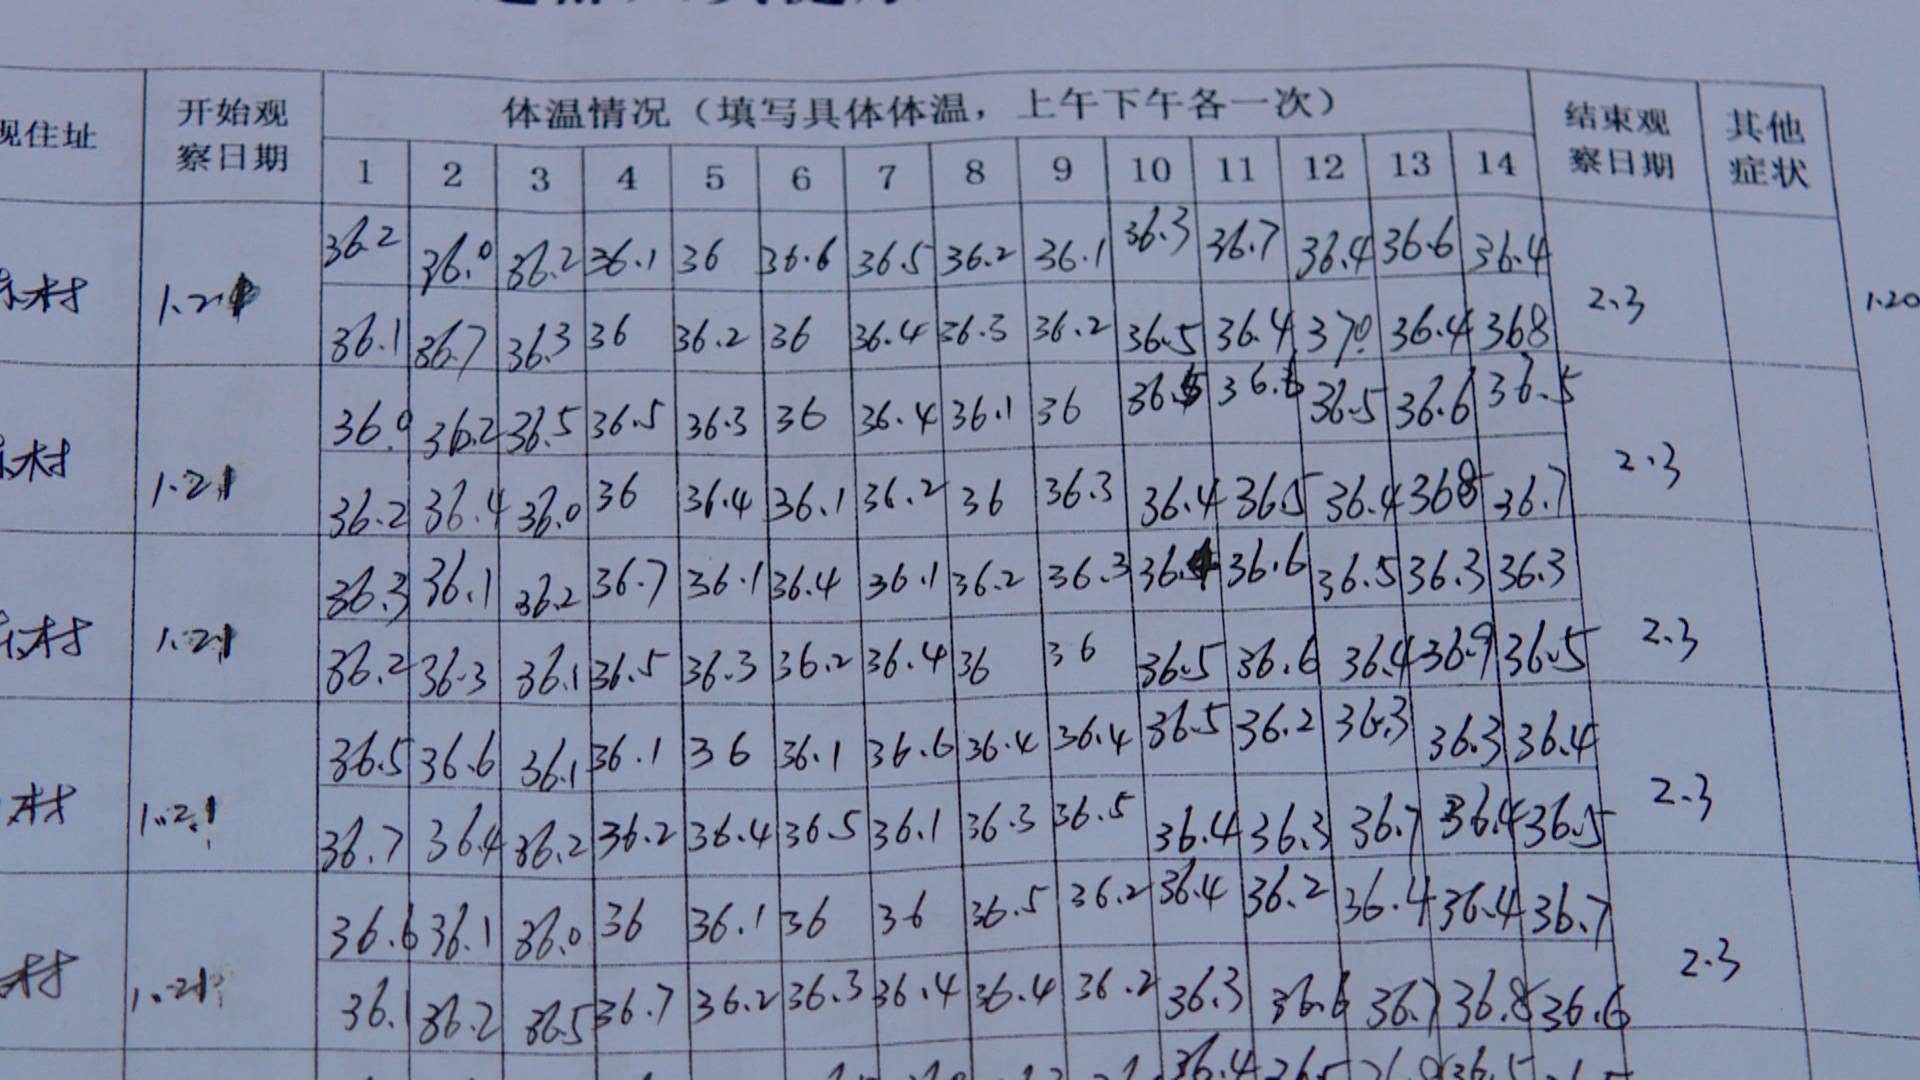 现住址 开始观察日期 体温情况（填写具体体温，上午下午各一次） 结束观察日期 其他症状
1 2 3 4 5 6 7 8 9 10 11 12 13 14
36.2 36.0 36.2 36.1 36 36.6 36.5 36.2 36.1 36.3 36.7 36.4 36.6 36.4
村 1.21 2.3 1.20
36.1 36.7 36.3 36 36.2 36 36.4 36.3 36.2 36.5 36.4 37.0 36.4 368
36.0 36.2 36.5 36.5 36.3 36 36.4 36.1 36 36.5 36.6 36.5 36.6 36.5
村 1.21 2.3
36.2 36.4 36.0 36 36.4 36.1 36.2 36 36.3 36.4 36.5 36.4 368 36.7
36.3 36.1 36.2 36.7 36.1 36.4 36.1 36.2 36.3 36.4 36.6 36.5 36.3 36.3
村 1.21 2.3
36.2 36.3 36.1 36.5 36.3 36.2 36.4 36 36 36.5 36.6 36.4 36.9 36.5
36.5 36.6 36.1 36.1 36 36.1 36.6 36.4 36.4 36.5 36.2 36.3 36.3 36.4
村 1.21 2.3
36.7 36.4 36.2 36.2 36.4 36.5 36.1 36.3 36.5 36.4 36.3 36.7 36.4 36.5
36.6 36.1 36.0 36 36.1 36 36 36.5 36.2 36.4 36.2 36.4 36.4 36.7
村 1.21 2.3
36.1 36.2 36.5 36.7 36.2 36.3 36.4 36.4 36.2 36.3 36.6 36.7 36.8 36.6
36.4 36.5